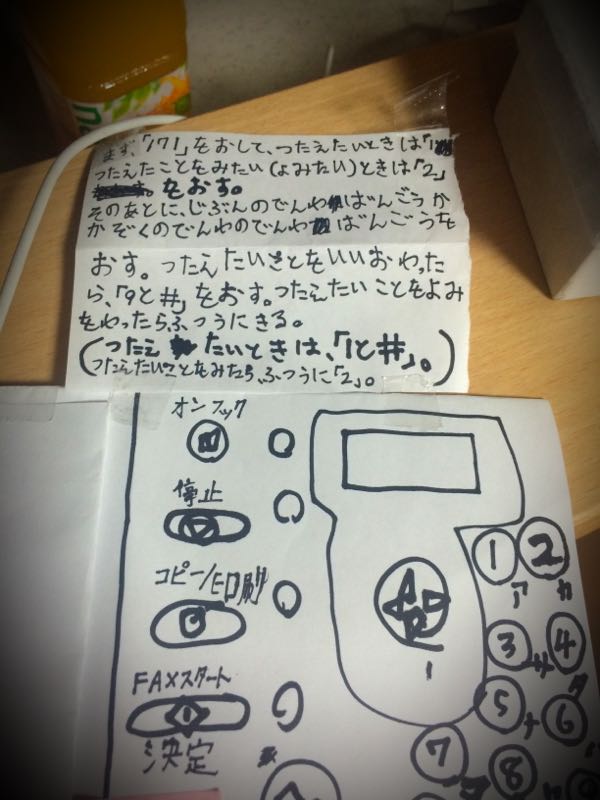 まず、「171」をおして、つたえたいときは「1」
つたえたことをみたい(よみたい)ときは「2」
をおす。
そのあとに、じぶんのでんわばんごうか
かぞくのでんわのでんわばんごうを
おす。つたえたいことをいいおわった
ら、「9と#」をおす。つたえたいことをよみ
をわったらふつうにきる。
(つたえたいときは、「1と#」。
つたえたいことをみたら、ふつうに「2」。)
オンフック
停止
コピー/印刷
FAXスタート
決定
1 2
ア カ
3 4
サ タ
5 6
ナ
7 8